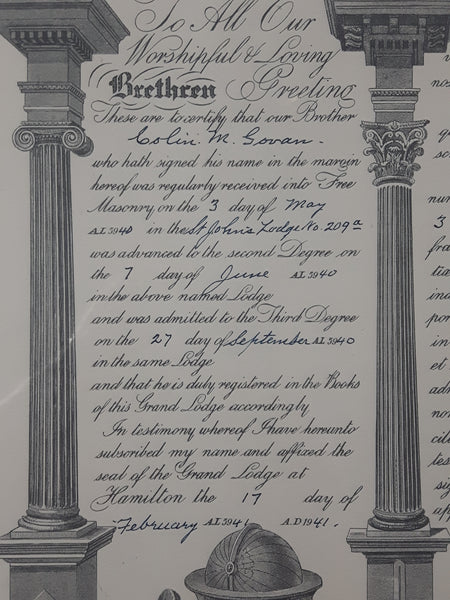 To All Our
Worshipful & Loving
Brethren Greeting
These are to certify that our Brother
Colin. M. Govan.
who hath signed his name in the margin
hereof was regularly received into Free
Masonry on the 3 day of May
A.L 5940 in the St John's Lodge No. 209a
was advanced to the second Degree on
the 7 day of June A.L 5940
in the above named Lodge
and was admitted to the Third Degree
on the 27 day of September A.L 5940
in the same Lodge
and that he is duly registered in the Books
of this Grand Lodge accordingly
In testimony whereof I have hereunto
subscribed my name and affixed the
seal of the Grand Lodge at
Hamilton the 17 day of
February A.L 5941 A.D 1941.